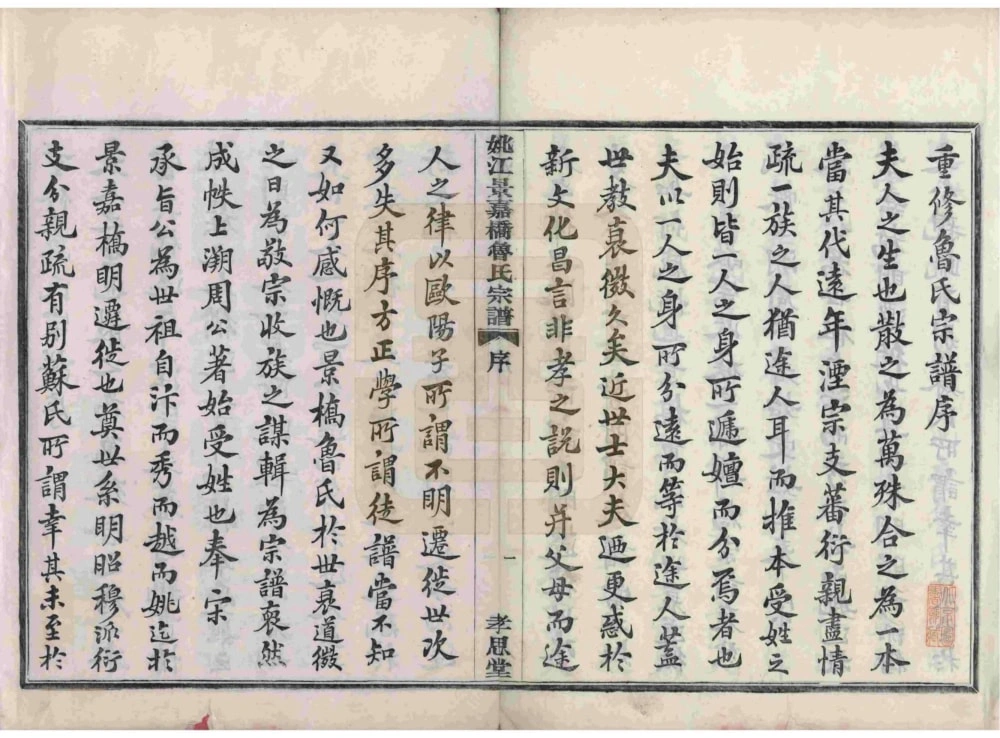 重修魯氏宗譜序
夫人之生也散之為萬殊合之為一本
當其代遠年湮宗支蕃衍親盡情
疏一族之人猶途人耳而推本受姓之
始則皆一人之身所遞嬗而分焉者也
夫以一人之身所分遠而等於途人蓋
世教衰微久矣近世士大夫迺更惑於
新文化昌言非孝之說則并父母而途
姚江景嘉橋魯氏宗譜 序 一 孝思堂
人之律以歐陽子所謂不明遷徙世次
多失其序方正學所謂徒譜當不知
又如何感慨也景橋魯氏於世衰道微
之日為敬宗收族之謀輯為宗譜裒然
成帙上溯周公著始受姓也奉宋
承旨公為世祖自汴而秀而越而姚迄於
景嘉橋明遷徙也奠世系明昭穆派衍
支分親疏有别蘇氏所謂幸其未至於